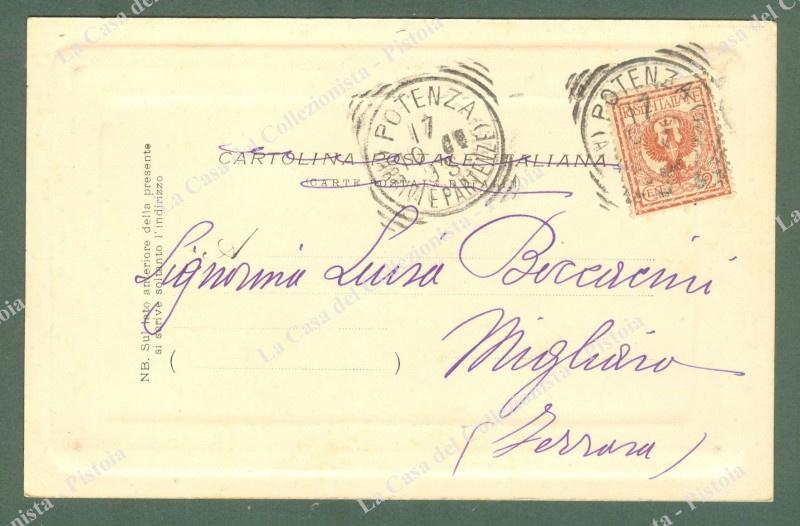 POTENZA
17
(ARRIVI E PARTENZE)
POTENZA
17
POSTE ITALIANE
CARTOLINA POSTALE ITALIANA
(CARTE POSTALE ITALIENNE)
NB. Sul lato anteriore della presente
si scrive soltanto l'indirizzo
Signorina Luisa Boccaccini
Migliaro
(Ferrara)
La Casa del Collezionista - Pistoia